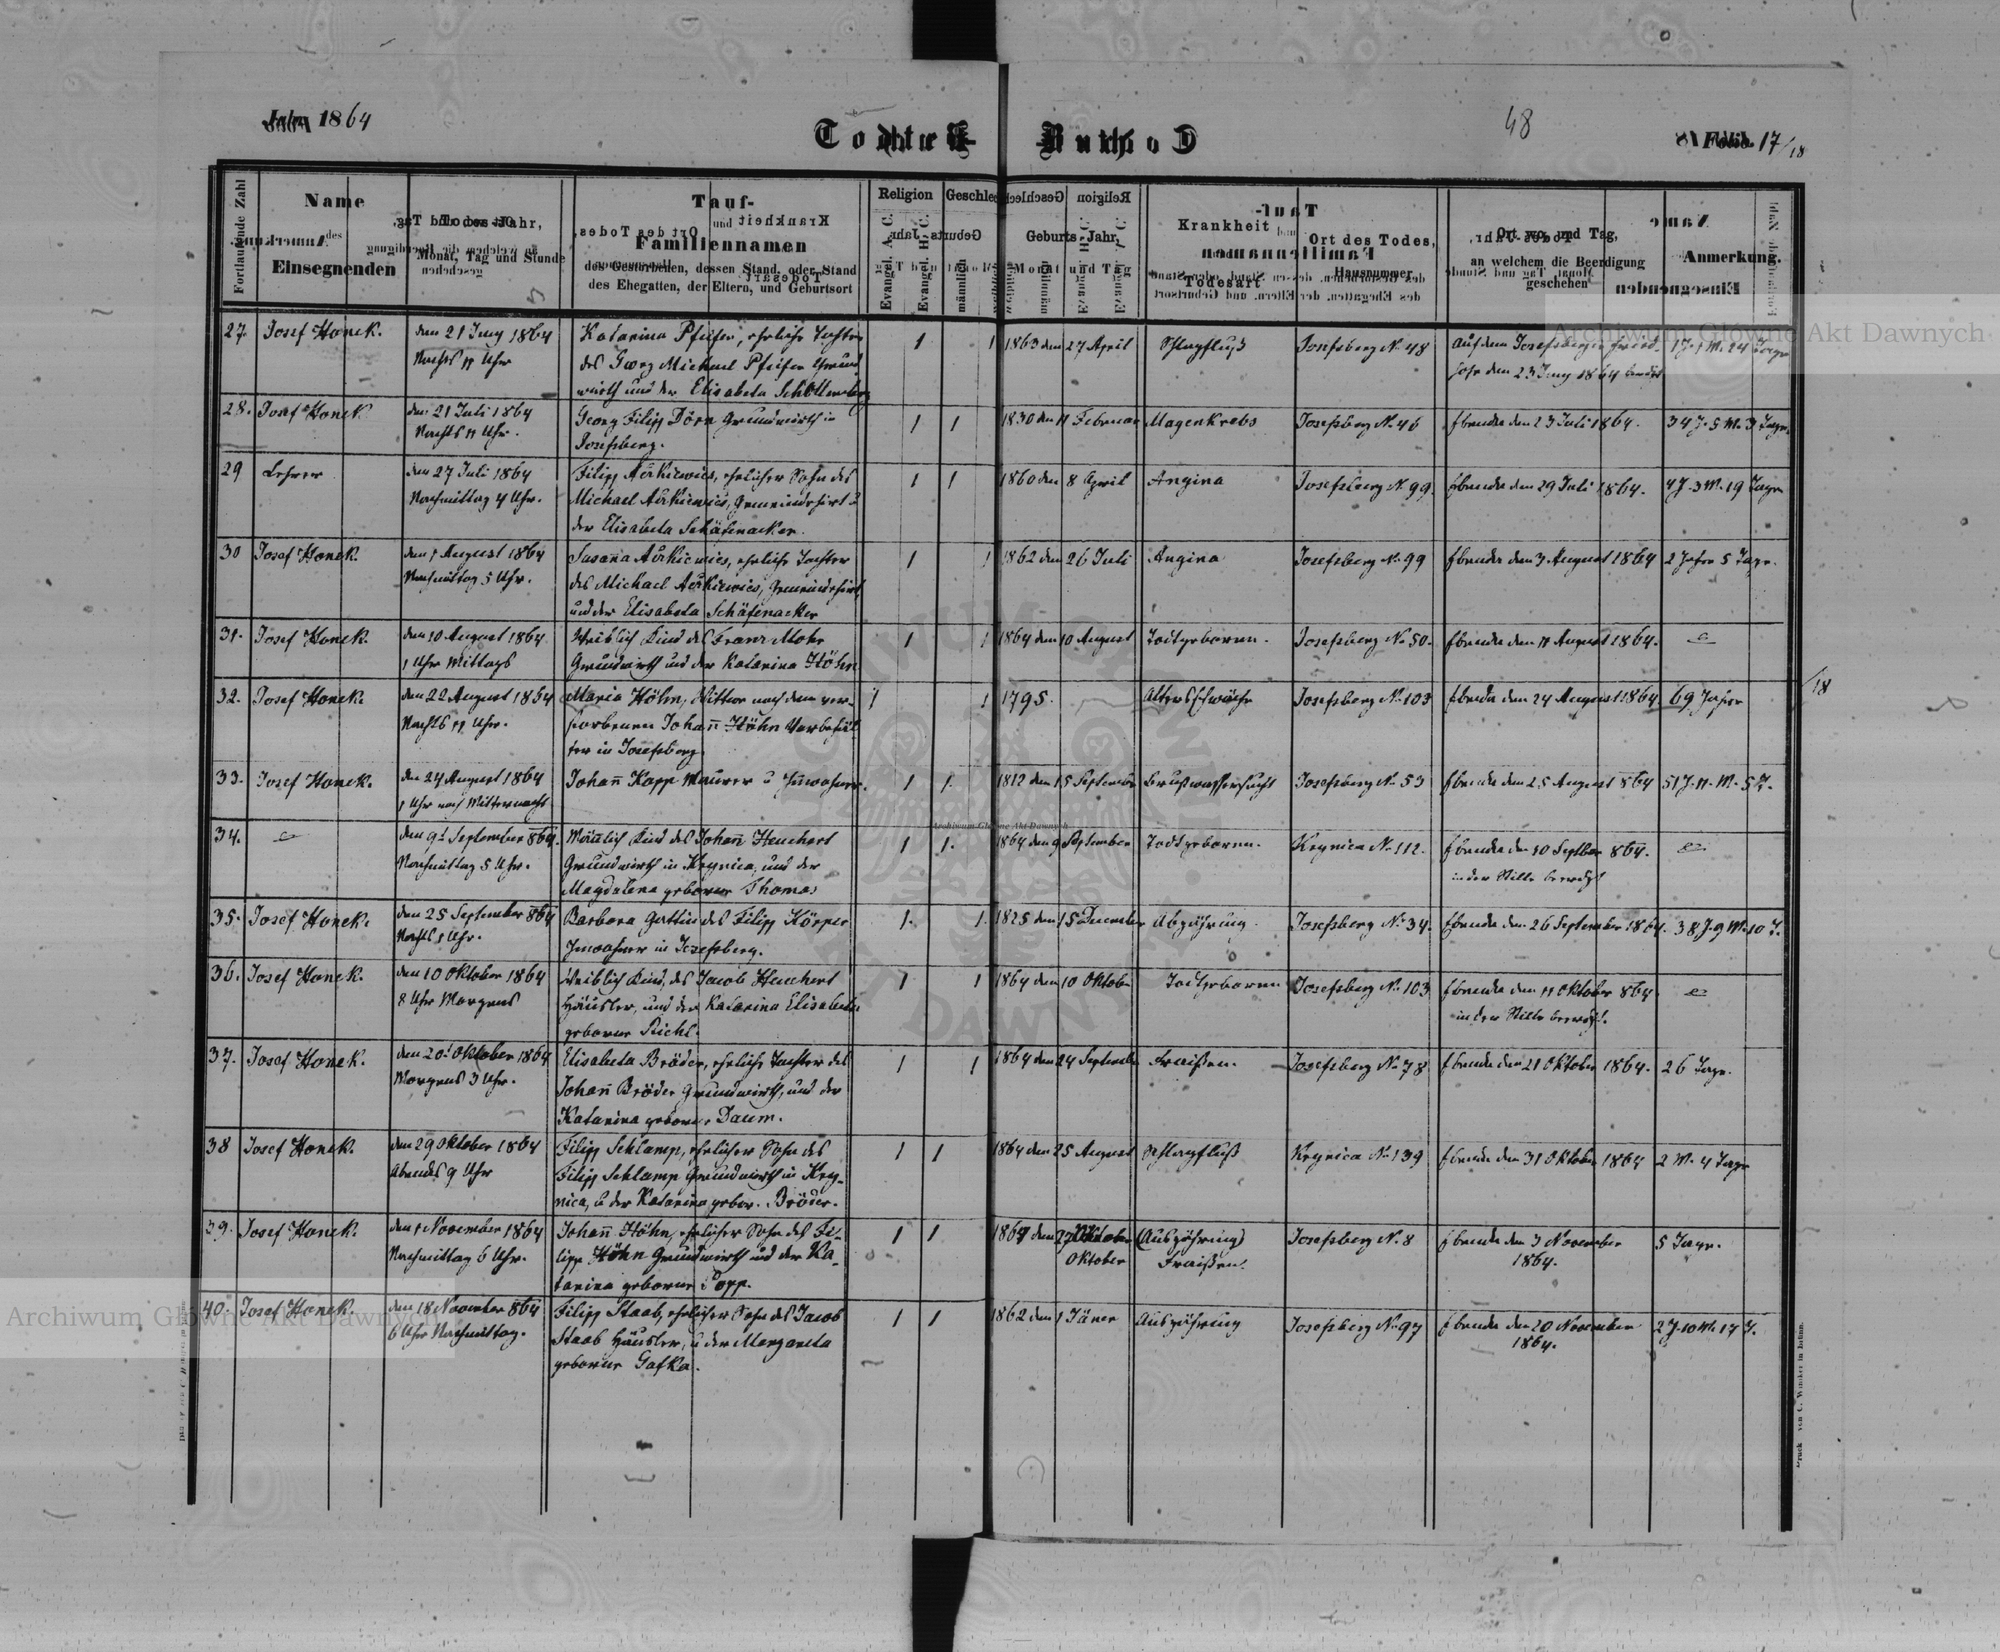 Jahr 1864
Todten Buch
48
Folio 17/18
Fortlaufende Zahl
Name
des
Einsegnenden
Todes-Jahr,
Monat, Tag und Stunde
Tauf-
und
Familiennamen
des Gestorbenen, dessen Stand, oder Stand
des Ehegatten, der Eltern, und Geburtsort
Religion
Evangel. A. C.
Evangel. H. C.
Geschlecht
männlich
Geburts-Jahr,
Monat und Tag
Krankheit
und
Todesart
Ort des Todes,
Hausnummer
Ort wo, und Tag,
an welchem die Beerdigung
geschehen
Anmerkung.
27. Josef Honek. den 21 Juny 1864 Katarina Pfeifer, eheliche Tochter 1 1 1863 den 27 April Schlagfluß Josefsberg No 48 Auf dem Josefsberger Fried- 1 J. 1 M. 24 Tage
Nachts 11 Uhr des Georg Michael Pfeifer Grund hofe den 23 Juny 1864 beerdigt
wirth und der Elisabeta Schöllenberg
28. Josef Honek den 21 Juli 1864 Georg Filipp Dörn Grundwirth in 1 1 1830 den 11 Februar Magenkrebs Josefsberg No 46 Ebenda den 23 Juli 1864. 34 J. 5 M.
Nachts 11 Uhr. Josefsberg.
29 Lehrer den 27 Juli 1864 Filipp, ehelicher Sohn des 1 1 1860 den 8 April Angina Josefsberg No 99. Ebenda den 29 Juli 1864. 4 J. 3 M. 19 Tage
Nachmittag 4 Uhr. Michael, Gemeindehirt u
der Elisabeta Schäfenacker.
30 Josef Honek. den 1 August 1864 Susana, eheliche Tochter 1 1 1862 den 26 Juli Angina Josefsberg No 99 Ebenda den 3 August 1864 2 Jahre 5 Tage.
Nachmittag 5 Uhr. des Michael, Gemeindehirt,
und der Elisabeta Schäfenacker
31. Josef Honek. den 10 August 1864. Weiblich Kind des Franz Mohr 1 1 1864 den 10 August Todtgeboren. Josefsberg No 50. Ebenda den 11 August 1864.
1 Uhr Mittags Grundwirth und der Katarina Höhn
32. Josef Honek. den 22 August 1864 Maria Höhn, Wittwe nach dem ver- 1 1 1795. Altersschwäche Josefsberg No 103 Ebenda den 24 August 1864. 69 Jahre
Nachts 11 Uhr. storbenen Johann Höhn
in Josefsberg
33. Josef Honek. den 24 August 1864 Johann Kopp Maurer u Inwohner. 1 1. 1812 den 15 September Brustwassersucht Josefsberg No 53 Ebenda den 25 August 864 51 J. 11 M. 5 T.
1 Uhr nach Mitternacht
34. den 9t September 864. Mänlich Kind des Johann Heuchert 1 1. 1864 den 9 September Todtgeboren. Krynica No 112. Ebenda den 10 Septber 864.
Nachmittag 5 Uhr. Grundwirth in Krynica, und der in der Stille beerdigt
Magdalena geborne Thomas
35. Josef Honek. den 25 September 864 Barbara Gattin des Filipp Körper 1. 1. 1825 den 15 December Abzehrung. Josefsberg No 34. Ebenda den 26 September 1864. 38 J. 9 M. 10 T.
Nachts 1 Uhr. Inwohner in Josefsberg.
36. Josef Honek. den 10 Oktober 1864 Weiblich Kind, des Jacob Heuchert 1 1 1864 den 10 Oktober Todtgeboren Josefsberg No 103 Ebenda den 11 Oktober 864.
8 Uhr Morgens Häusler, und der Katarina Elisabeta in der Stille beerdigt.
geborne Richl.
37. Josef Honek. den 20t Oktober 1864 Elisabeta Bröder, eheliche Tochter des 1 1 1864 den 24 September Fraißen. Josefsberg No 78 Ebenda den 21 Oktober 1864. 26 Tage.
Morgens 3 Uhr. Johann Bröder Grundwirth, und der
Katarina geborne Daum.
38 Josef Honek. den 29 Oktober 1864 Filipp Schlamp, ehelicher Sohn des 1 1 1864 den 25 August Schlagfluß Krynica No 139 Ebenda den 31 Oktober 1864 2 M. 4 Tage
Abends 9 Uhr Filipp Schlamp Grundwirth in Kry-
nica, u der Katarina gebor. Bröder.
39. Josef Honek. den 1 November 1864 Johann Höhn, ehelicher Sohn des Fi- 1 1 1864 den 27 Oktober (Auszehrung) Josefsberg No 8 Ebenda den 3 November 5 Tage.
Nachmittag 6 Uhr. lipp Höhn Grundwirth und der Ka- Oktober Fraißen. 1864.
tarina geborne Popp.
40. Josef Honek. den 18 November 864 Filipp Staab, ehelicher Sohn des Jacob 1 1 1862 den 1 Jäner Auszehrung Josefsberg No 97 Ebenda den 20 November 2 J. 10 M. 17 T.
6 Uhr Nachmittag. Staab Häusler, u der Margareta 1864.
geborne Gafka.
18
Archiwum Główne Akt Dawnych
Archiwum Główne Akt Dawnych
Archiwum Główne Akt Dawnych